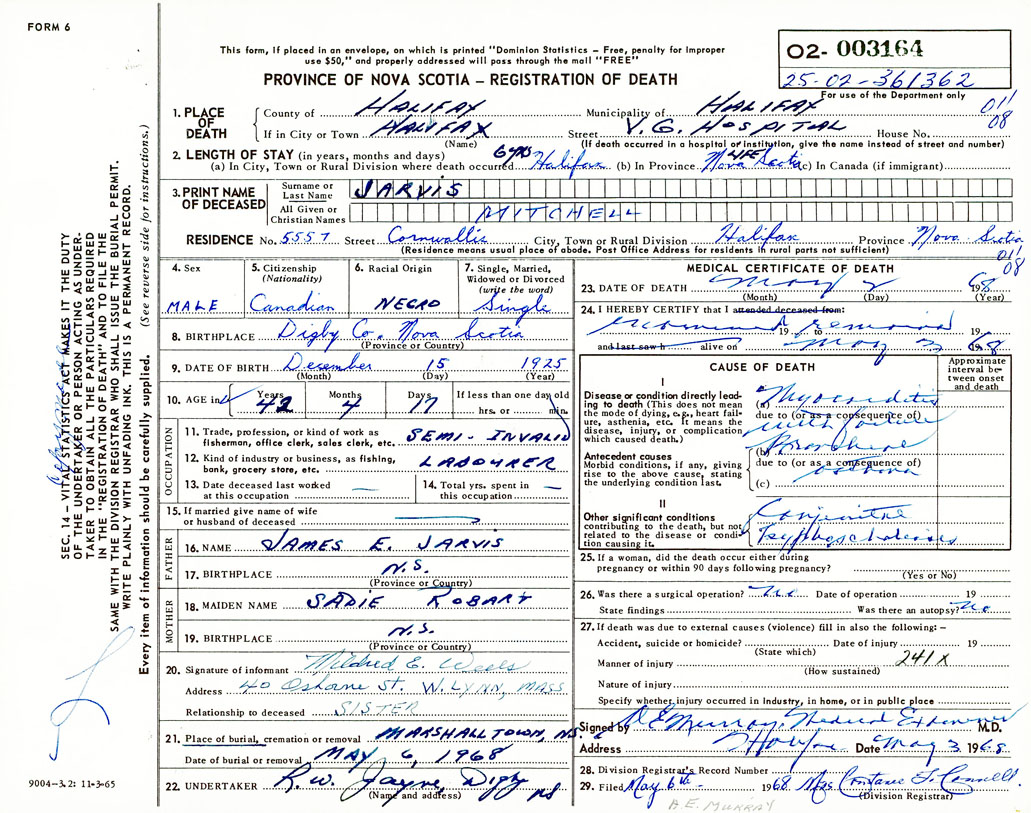 FORM 6
This form, if placed in an envelope, on which is printed "Dominion Statistics – Free, penalty for improper
use $50," and properly addressed will pass through the mail "FREE"
PROVINCE OF NOVA SCOTIA – REGISTRATION OF DEATH
O2- 003164
25-02-361362
For use of the Department only
011
08
1. PLACE OF DEATH
County of HALIFAX Municipality of HALIFAX
If in City or Town HALIFAX Street V. G. HOSPITAL House No.
(Name) (If death occurred in a hospital or institution, give the name instead of street and number)
2. LENGTH OF STAY (in years, months and days)
(a) In City, Town or Rural Division where death occurred 6 yrs Halifax (b) In Province LIFE Nova Scotia (c) In Canada (if immigrant)
3. PRINT NAME OF DECEASED
Surname or Last Name JARVIS
All Given or Christian Names MITCHELL
RESIDENCE No. 5557 Street Cornwallis City, Town or Rural Division Halifax Province Nova Scotia
(Residence means usual place of abode. Post Office Address for residents in rural parts not sufficient)
011
08
4. Sex
MALE
5. Citizenship (Nationality)
Canadian
6. Racial Origin
NEGRO
7. Single, Married, Widowed or Divorced (write the word)
Single
8. BIRTHPLACE Digby Co. Nova Scotia
(Province or Country)
9. DATE OF BIRTH December 15 1925
(Month) (Day) (Year)
10. AGE in Years Months Days If less than one day old
42 4 17 hrs. or min.
OCCUPATION
11. Trade, profession or kind of work as
fisherman, office clerk, sales clerk, etc. SEMI-INVALID
12. Kind of industry or business, as fishing,
bank, grocery store, etc. LABOURER
13. Date deceased last worked
at this occupation —
14. Total yrs. spent in
this occupation —
15. If married give name of wife
or husband of deceased
FATHER
16. NAME JAMES E. JARVIS
17. BIRTHPLACE N.S.
(Province or Country)
MOTHER
18. MAIDEN NAME SADIE ROBART
19. BIRTHPLACE N.S.
(Province or Country)
20. Signature of informant Mildred E.
Address 40 Osborne St. W. LYNN, MASS
Relationship to deceased SISTER
21. Place of burial, cremation or removal MARSHALLTOWN, NS
Date of burial or removal MAY 6, 1968
22. UNDERTAKER R.W. Jayne, Digby NS
(Name and address)
MEDICAL CERTIFICATE OF DEATH
23. DATE OF DEATH May 2 1968
(Month) (Day) (Year)
24. I HEREBY CERTIFY that I attended deceased from:
19 to 19
and last saw h alive on May 3 1968
CAUSE OF DEATH
Approximate interval between onset and death
I
Disease or condition directly leading to death (This does not mean
the mode of dying, e.g., heart failure, asthenia, etc. It means the
disease, injury, or complication
which caused death.)
(a) Myocarditis
due to (or as a consequence of)
Antecedent causes
Morbid conditions, if any, giving
rise to the above cause, stating
the underlying condition last.
(b) Bronchial
due to (or as a consequence of)
(c)
II
Other significant conditions
contributing to the death, but not
related to the disease or condition causing it.
25. If a woman, did the death occur either during
pregnancy or within 90 days following pregnancy?
(Yes or No)
26. Was there a surgical operation? No Date of operation 19
State findings Was there an autopsy? No
27. If death was due to external causes (violence) fill in also the following: –
Accident, suicide or homicide? Date of injury 19
(State which)
Manner of injury 241X
(How sustained)
Nature of injury
Specify whether injury occurred in industry, in home, or in public place
Signed by A E Murray, Medical Examiner M.D.
Address Halifax Date May 3 1968
28. Division Registrar's Record Number
29. Filed May 6th 1968
(Division Registrar)
A.E. MURRAY
SEC. 14 – VITAL STATISTICS ACT MAKES IT THE DUTY
OF THE UNDERTAKER OR PERSON ACTING AS UNDER-
TAKER TO OBTAIN ALL THE PARTICULARS REQUIRED
IN THE "REGISTRATION OF DEATH" AND TO FILE THE
SAME WITH THE DIVISION REGISTRAR WHO SHALL ISSUE THE BURIAL PERMIT.
WRITE PLAINLY WITH UNFADING INK. THIS IS A PERMANENT RECORD.
Every item of information should be carefully supplied. (See reverse side for instructions.)
9004–3.2: 11-3-65